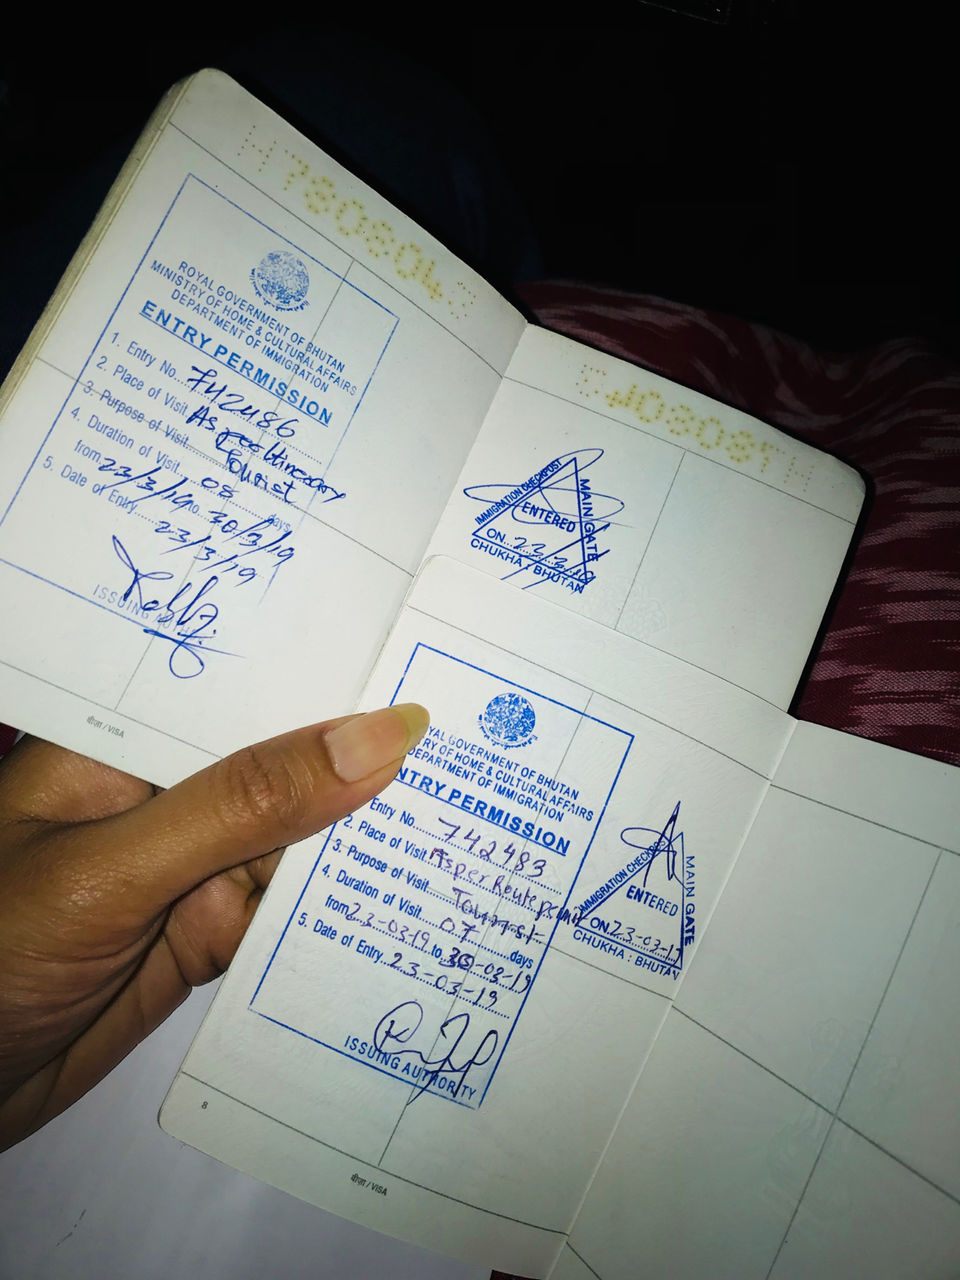 ROYAL GOVERNMENT OF BHUTAN
MINISTRY OF HOME & CULTURAL AFFAIRS
DEPARTMENT OF IMMIGRATION
ENTRY PERMISSION
1. Entry No. 742486
2. Place of Visit As per Itinerary
3. Purpose of Visit Tourist
4. Duration of Visit 08 days
from 23/3/19 to 30/3/19
5. Date of Entry 23/3/19
ISSUING
वीज़ा / VISA
IMMIGRATION CHECKPOST
MAIN GATE
ENTERED
ON 23/3/19
CHUKHA : BHUTAN
ROYAL GOVERNMENT OF BHUTAN
RY OF HOME & CULTURAL AFFAIRS
DEPARTMENT OF IMMIGRATION
ENTRY PERMISSION
Entry No. 742483
2. Place of Visit As per Route permit
3. Purpose of Visit Tourist
4. Duration of Visit 07 days
from 23-03-19 to 30-03-19
5. Date of Entry 23-03-19
ISSUING AUTHORITY
IMMIGRATION CHECKPOST
MAIN GATE
ENTERED
ON 23-03-19
CHUKHA : BHUTAN
8
वीज़ा / VISA